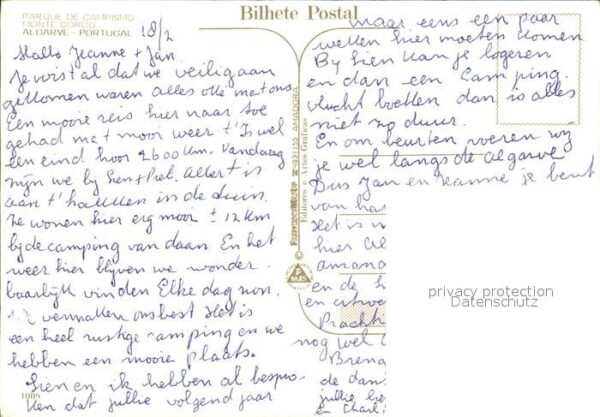 PARQUE DE CAMPISMO
MONTE GORDO
ALGARVE - PORTUGAL
18/2
Bilhete Postal
Hallo Jeanne + Jan
Je wist al dat we veilig aan
gekomen waren alles oke met ons
Een mooie reis hier naar toe
gehad met mooi weer t'Is wel
een eind hoor 2600 km. Vandaag
zijn we by Sien + Piet. Albert is
aan t' in de duin.
Ze wonen hier erg mooi ± 12 km
bij de camping van daan En het
weer hier blyven we wonder-
baarlijk vinden Elke dag zon.
vermaken ons best Het is
een heel rustige camping en we
hebben een mooie plaats.
Sien en ik hebben al bespro-
ken dat jullie volgend jaar
1084
maar eens een paar
weken hier moeten komen
By Sien kan je logeren
en dan een camping-
vlucht boeken dan is alles
niet zo duur.
En om beurten voeren wij
je wel langs de algarve
Dus Jan en Jeanne je bent
van har
Het is w
hier al
amand
en de h
en citroe
Prachti
nog wel
Breng
de dan
jullie
en Charl
Editores e Artes Gráficas
privacy protection
Datenschutz